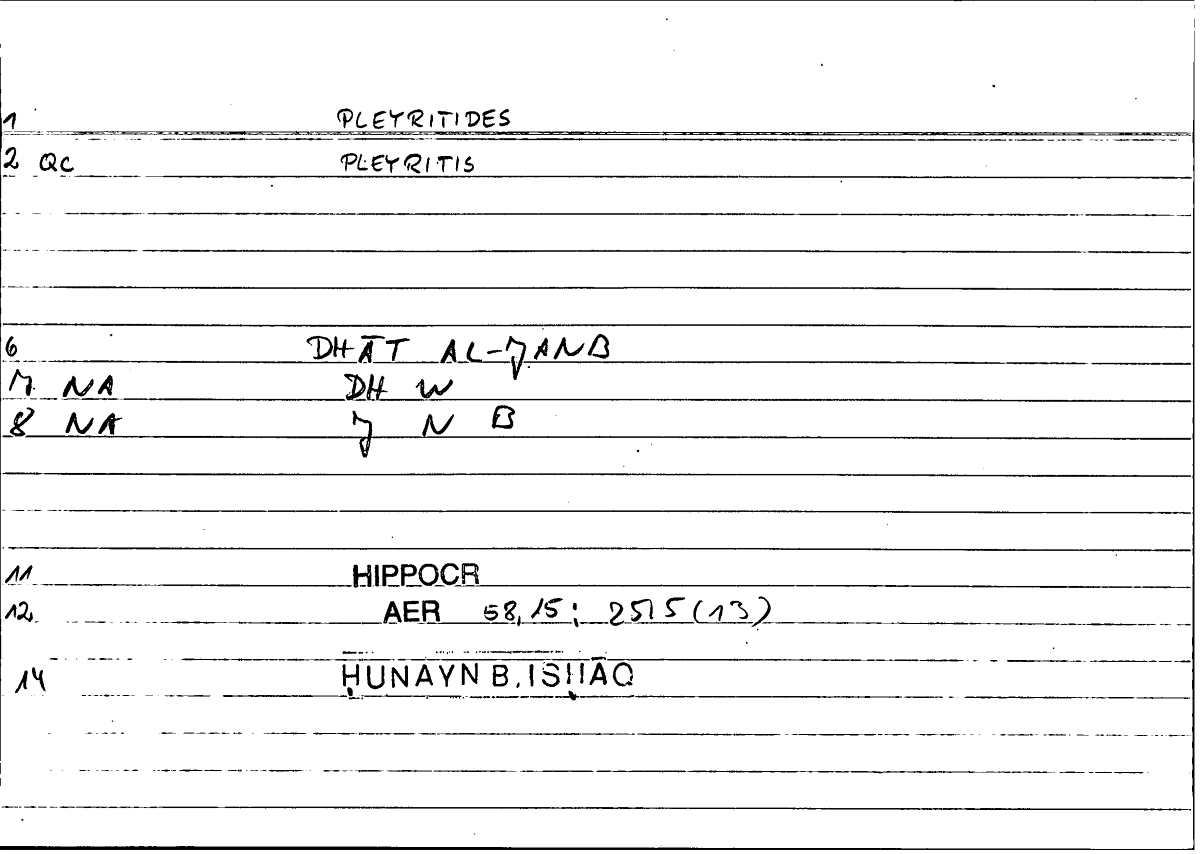 1 PLEYRITIDES
2 QC PLEYRITIS
6 DHĀT AL-JANB
7 NA DH W
8 NA J N B
11 HIPPOCR
12 AER 58,15; 25,5 (13)
14 ḤUNAYN B. ISḤĀQ